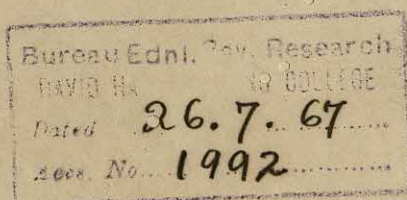 Bureau Ednl. Psy. Research
DAVID HA COLLEGE
Dated 26.7.67
Accs. No. 1992